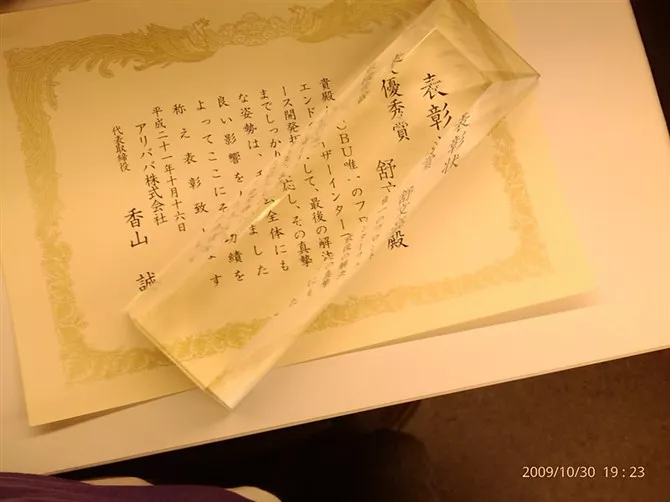 表彰状
優秀賞
舒文 殿
貴殿 CBU唯一のフロ
エンド ーザーインター
ース開発 応し、その真摯
して、最後の解決
までしっかり
な姿勢は、 ム全体にも
良い影響を ました
よってここにそ 功績を
称え表彰致 ます
平成二十一年十月十六日
アリババ株式会社
代表取締役 香山 誠
2009/10/30 19:23